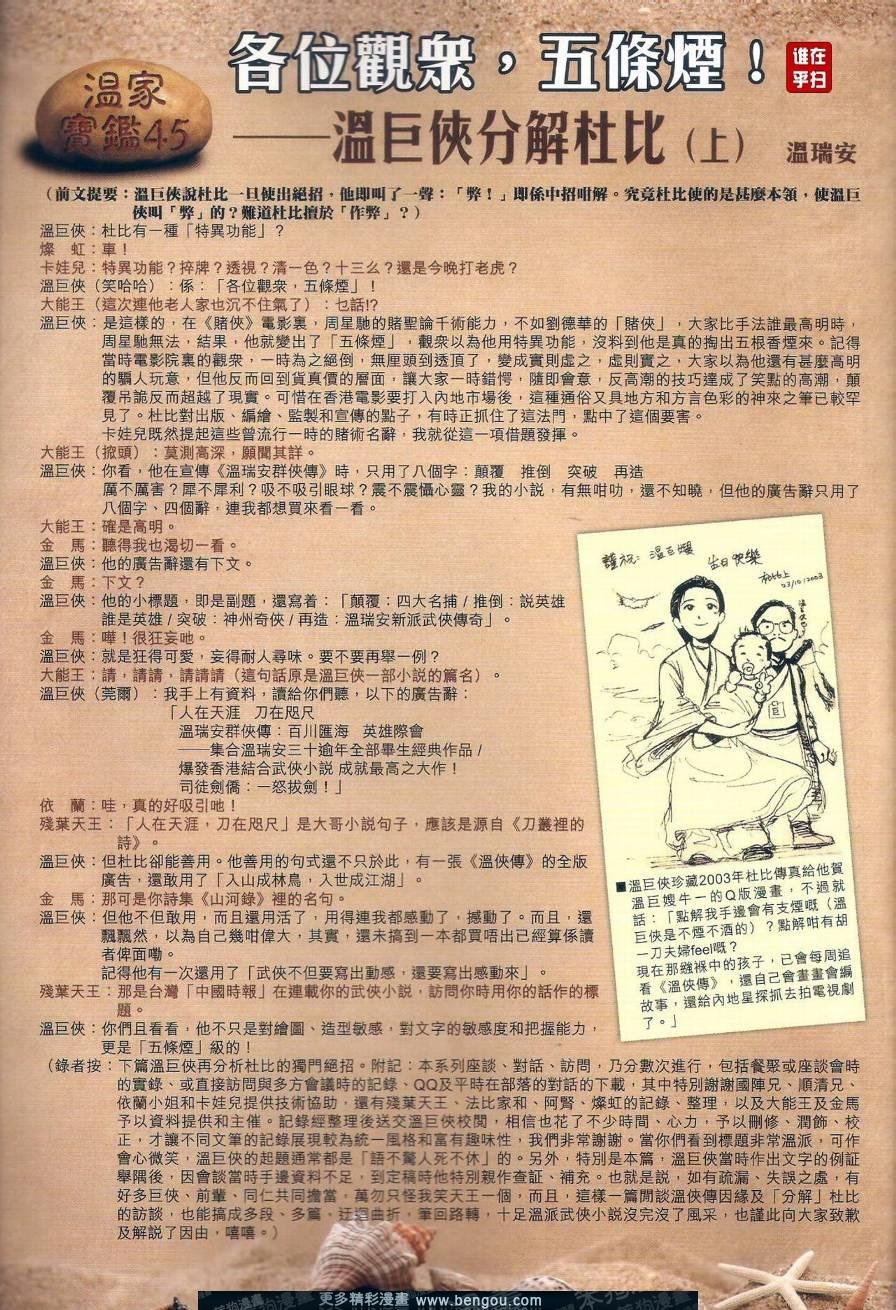 各位觀衆，五條煙！
谁在
乎扫
溫家
寶鑑45
——溫巨俠分解杜比（上） 溫瑞安
（前文提要：溫巨俠說杜比一旦使出絕招，他即叫了一聲：「弊！」即係中招咁解。究竟杜比使的是甚麼本領，使溫巨
俠叫「弊」的？難道杜比擅於「作弊」？）
溫巨俠：杜比有一種「特異功能」？
燦　虹：車！
卡娃兒：特異功能？捽牌？透視？清一色？十三么？還是今晚打老虎？
溫巨俠（笑哈哈）：係：「各位觀衆，五條煙」！
大能王（這次連他老人家也沉不住氣了）：乜話!?
溫巨俠：是這樣的，在《賭俠》電影裏，周星馳的賭聖論千術能力，不如劉德華的「賭俠」，大家比手法誰最高明時，
周星馳無法，結果，他就變出了「五條煙」，觀衆以為他用特異功能，沒料到他是真的掏出五根香煙來。記得
當時電影院裏的觀衆，一時為之絕倒，無厘頭到透頂了，變成實則虛之，虛則實之，大家以為他還有甚麼高明
的騙人玩意，但他反而回到貨真價的層面，讓大家一時錯愕，隨即會意，反高潮的技巧達成了笑點的高潮，顛
覆吊詭反而超越了現實。可惜在香港電影要打入內地市場後，這種通俗又具地方和方言色彩的神來之筆已較罕
見了。杜比對出版、編繪、監製和宣傳的點子，有時正抓住了這法門，點中了這個要害。
卡娃兒既然提起這些曾流行一時的賭術名辭，我就從這一項借題發揮。
大能王（掀頭）：莫測高深，願聞其詳。
溫巨俠：你看，他在宣傳《溫瑞安群俠傳》時，只用了八個字：顛覆　推倒　突破　再造
厲不厲害？犀不犀利？吸不吸引眼球？震不震懾心靈？我的小說，有無咁叻，還不知曉，但他的廣告辭只用了
八個字、四個辭，連我都想買來看一看。
大能王：確是高明。
金　馬：聽得我也渴切一看。
溫巨俠：他的廣告辭還有下文。
金　馬：下文？
溫巨俠：他的小標題，即是副題，還寫着：「顛覆：四大名捕 / 推倒：說英雄
誰是英雄 / 突破：神州奇俠 / 再造：溫瑞安新派武俠傳奇」。
金　馬：嘩！很狂妄吔。
溫巨俠：就是狂得可愛，妄得耐人尋味。要不要再舉一例？
大能王：請，請請，請請請（這句話原是溫巨俠一部小說的篇名）。
溫巨俠（莞爾）：我手上有資料，讀給你們聽，以下的廣告辭：
「人在天涯　刀在咫尺
溫瑞安群俠傳：百川匯海　英雄際會
——集合溫瑞安三十逾年全部畢生經典作品 /
爆發香港結合武俠小說 成就最高之大作！
司徒劍僑：一怒拔劍！」
依　蘭：哇，真的好吸引吔！
殘葉天王：「人在天涯，刀在咫尺」是大哥小說句子，應該是源自《刀叢裡的
詩》。
溫巨俠：但杜比卻能善用。他善用的句式還不只於此，有一張《溫俠傳》的全版
廣告，還敢用了「入山成林鳥，入世成江湖」。
金　馬：那可是你詩集《山河錄》裡的名句。
溫巨俠：但他不但敢用，而且還用活了，用得連我都感動了，撼動了。而且，還
飄飄然，以為自己幾咁偉大，其實，還未搞到一本都買唔出已經算係讀
者俾面嘞。
記得他有一次還用了「武俠不但要寫出動感，還要寫出感動來」。
殘葉天王：那是台灣「中國時報」在連載你的武俠小說，訪問你時用你的話作的標
題。
溫巨俠：你們且看看，他不只是對繪圖、造型敏感，對文字的敏感度和把握能力，
更是「五條煙」級的！
謹祝：溫巨嫂
生日快樂
杜比上
23/10/2003
溫巨俠
巨
■溫巨俠珍藏2003年杜比傳真給他賀
溫巨嫂牛一的Q版漫畫，不過就
話：「點解我手邊會有支煙嘅（溫
巨俠是不煙不酒的）？點解咁有胡
一刀夫婦feel嘅？
現在那繈褓中的孩子，已會每周追
看《溫俠傳》，還自己會畫畫會編
故事，還給內地星探抓去拍電視劇
了。」
（錄者按：下篇溫巨俠再分析杜比的獨門絕招。附記：本系列座談、對話、訪問，乃分數次進行，包括餐聚或座談會時
的實錄、或直接訪問與多方會議時的記錄、QQ及平時在部落的對話的下載，其中特別謝謝國陣兄、順清兄、
依蘭小姐和卡娃兒提供技術協助，還有殘葉天王、法比家和、阿賢、燦虹的記錄、整理，以及大能王及金馬
予以資料提供和主催。記錄經整理後送交溫巨俠校閱，相信也花了不少時間、心力，予以刪修、潤飾、校
正，才讓不同文筆的記錄展現較為統一風格和富有趣味性，我們非常謝謝。當你們看到標題非常溫派，可作
會心微笑，溫巨俠的起題通常都是「語不驚人死不休」的。另外，特別是本篇，溫巨俠當時作出文字的例証
舉隅後，因會談當時手邊資料不足，到定稿時他特別親作查証、補充。也就是說，如有疏漏、失誤之處，有
好多巨俠、前輩、同仁共同擔當，萬勿只怪我笑天王一個，而且，這樣一篇閒談溫俠傳因緣及「分解」杜比
的訪談，也能搞成多段、多篇、迂迴曲折，筆回路轉，十足溫派武俠小說沒完沒了風采，也謹此向大家致歉
及解說了因由，嘻嘻。）
更多精彩漫畫 www.bengou.com